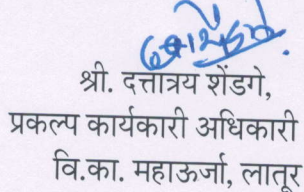 श्री. दत्तात्रय शेंडगे,
प्रकल्प कार्यकारी अधिकारी
वि.का. महाऊर्जा, लातूर